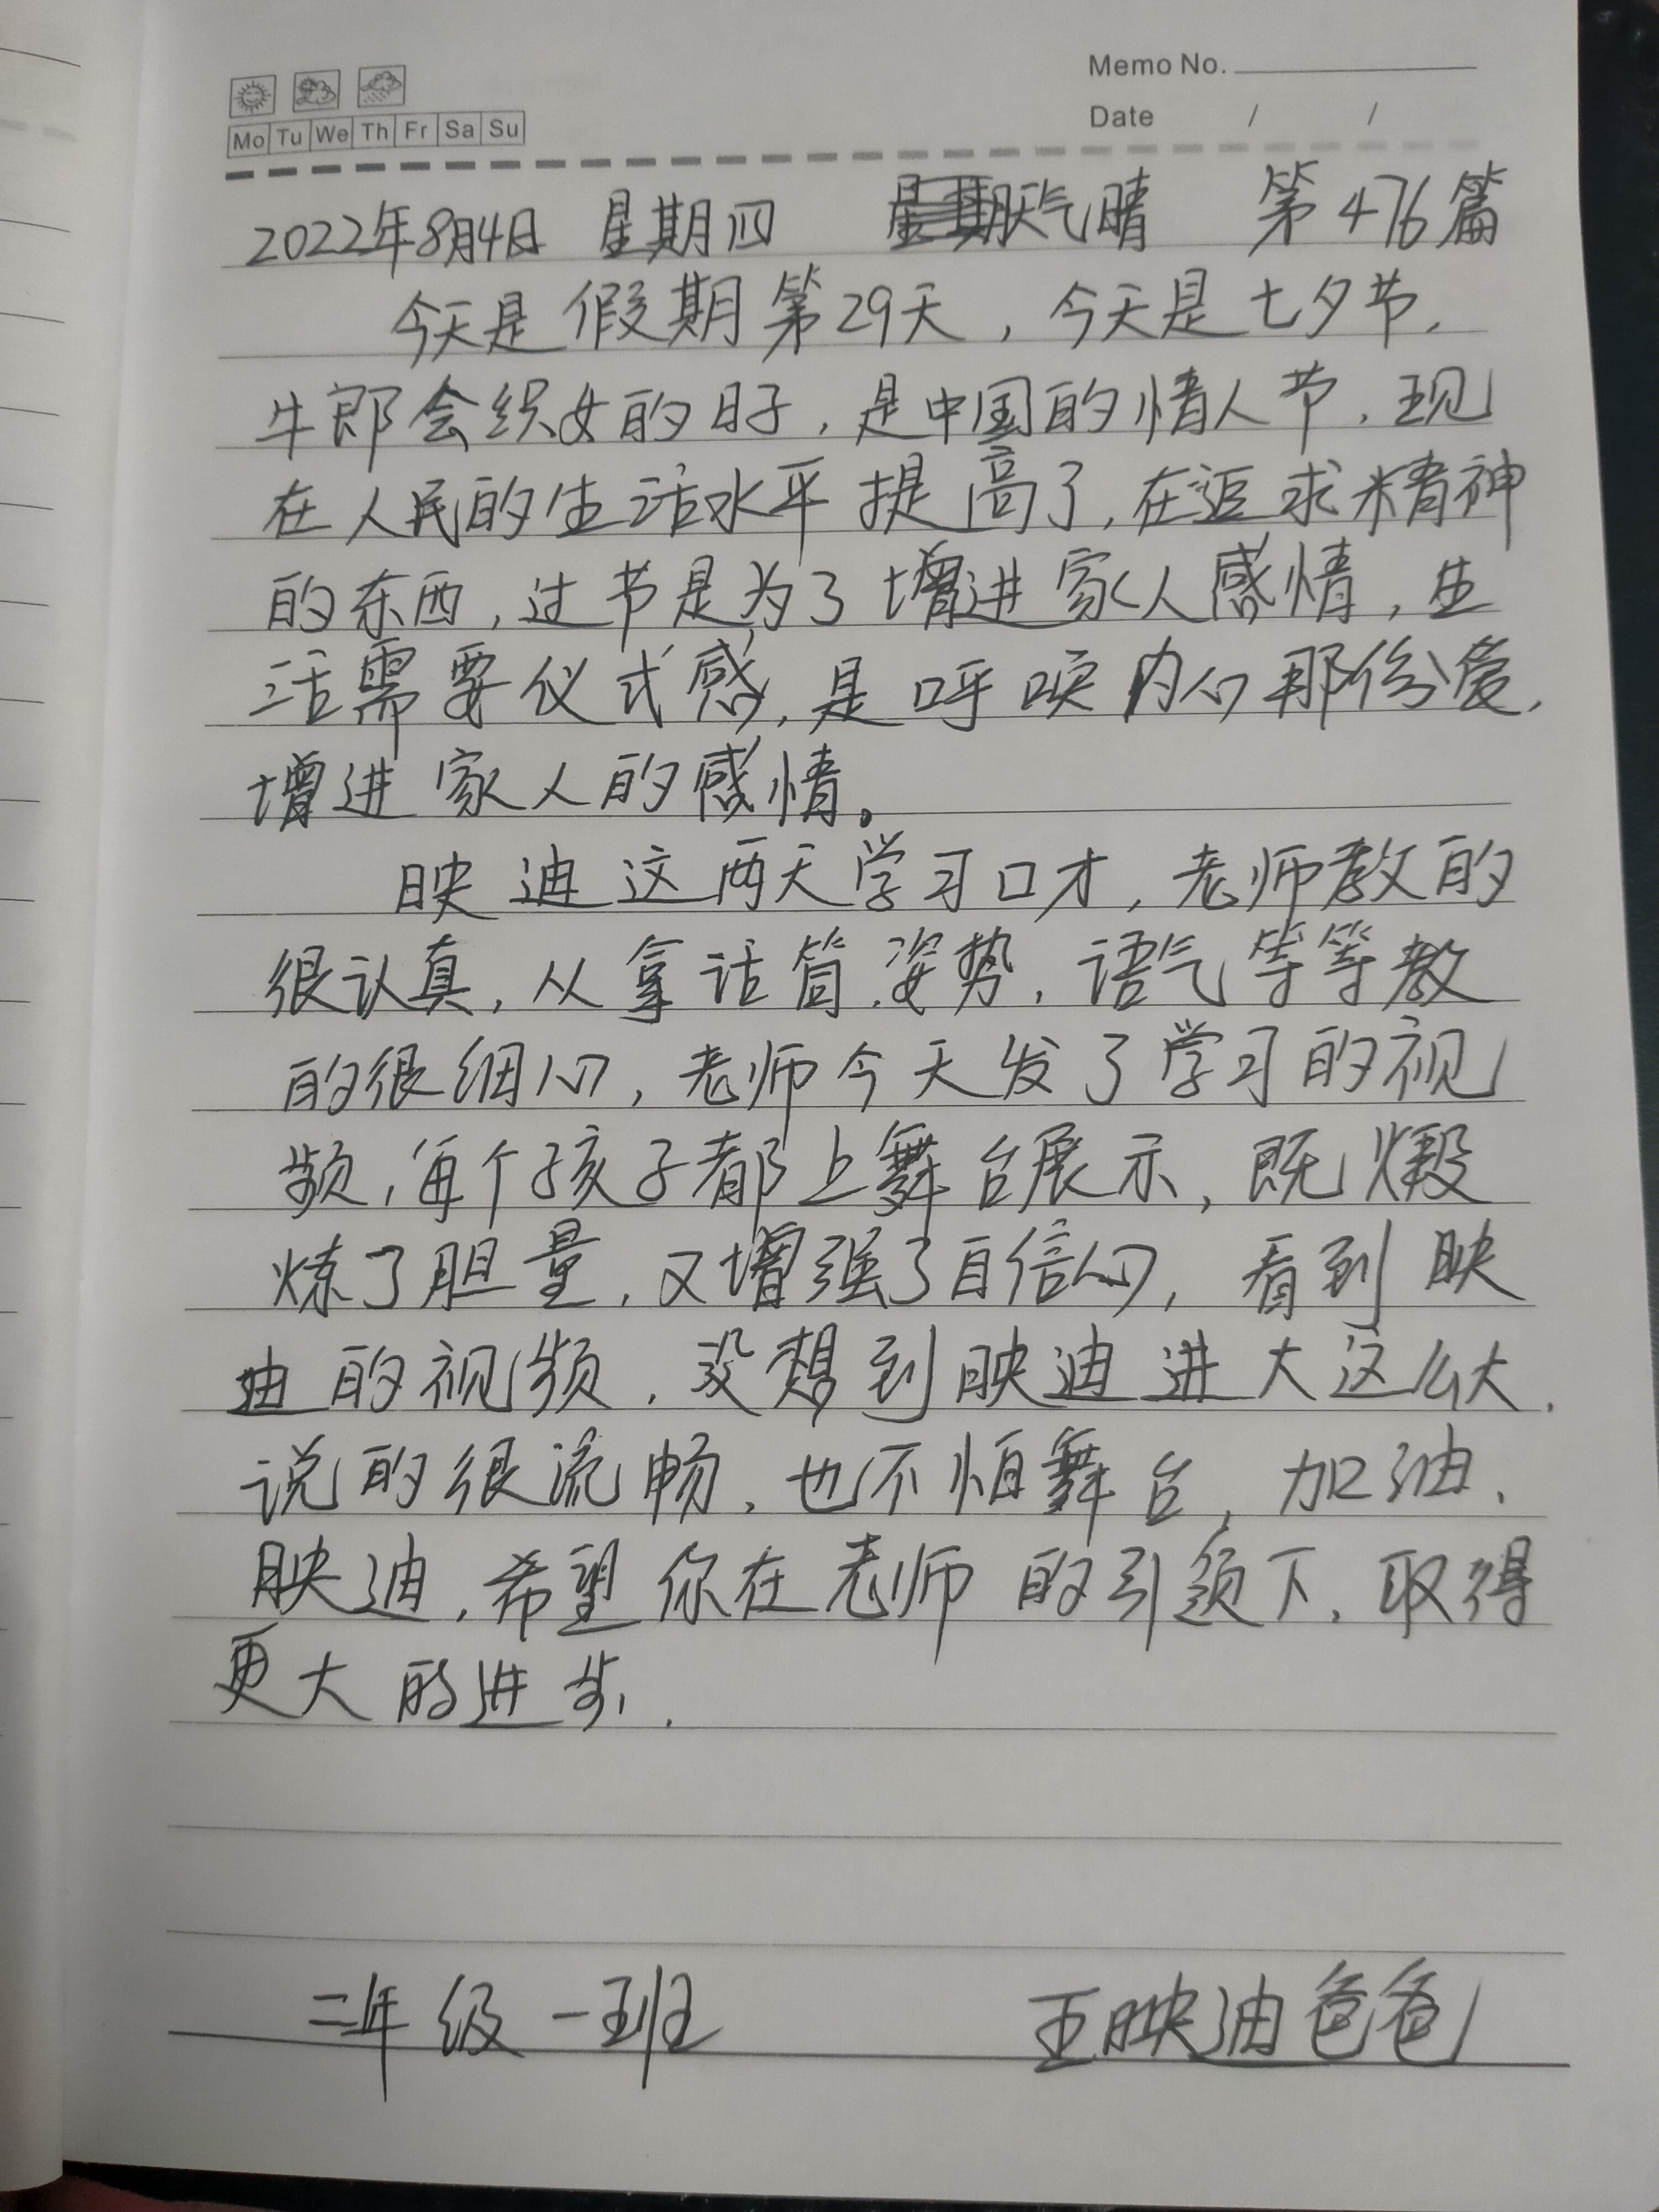 Memo No.
Mo Tu We Th Fr Sa Su
Date / /
2022年8月4日 星期四 天气晴 第476篇
今天是假期第29天，今天是七夕节，
牛郎会织女的日子，是中国的情人节，现
在人民的生活水平提高了，在追求精神
的东西，过节是为了增进家人感情，生
活需要仪式感，是呼唤内心那份爱，
增进家人的感情。
映迪这两天学习口才，老师教的
很认真，从拿话筒，姿势，语气等等教
的很细心，老师今天发了学习的视
频，每个孩子都上舞台展示，既煅
炼了胆量，又增强了自信心，看到映
迪的视频，没想到映迪进大这么大，
说的很流畅，也不怕舞台，加油，
映迪，希望你在老师的引领下，取得
更大的进步．
二年级一班 王映迪爸爸